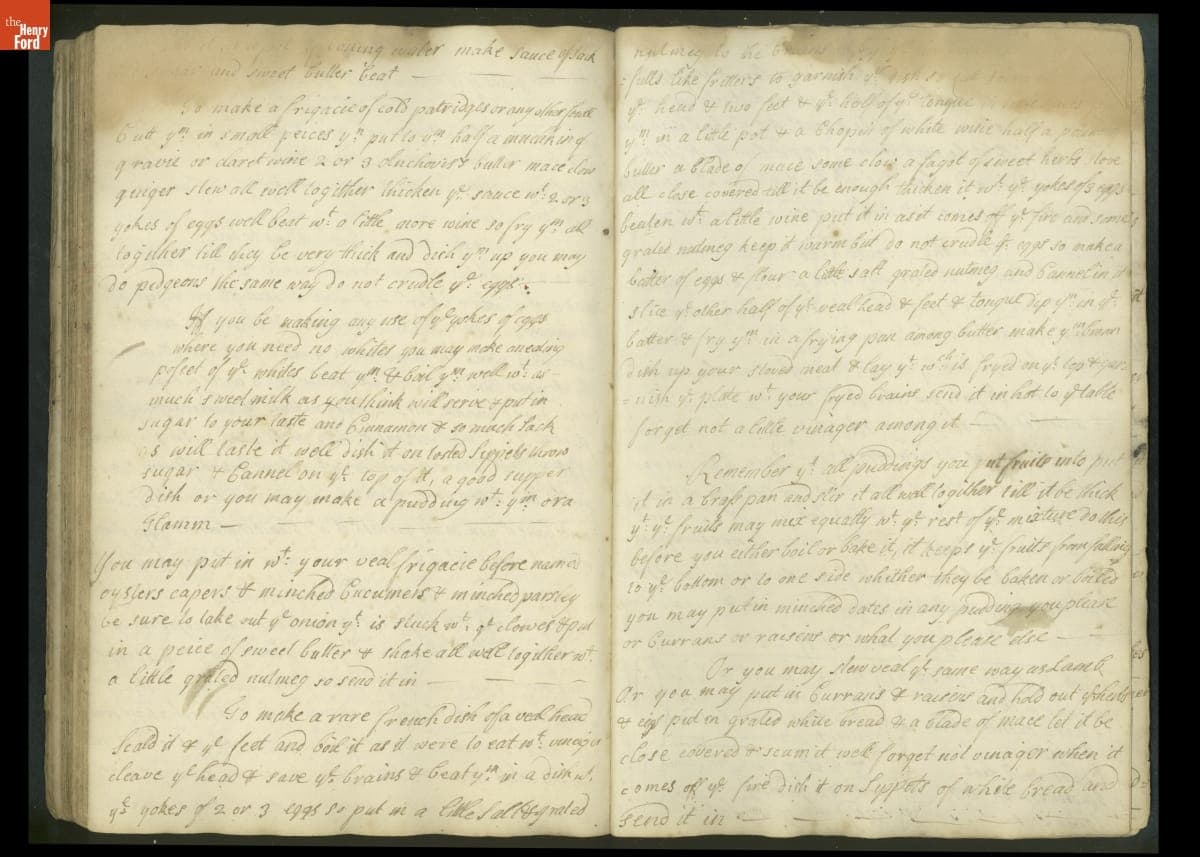 the
Henry
Ford
boiling water make sauce of sack
sugar and sweet butter beat
To make a frigacie of cold patridges or any other foull
Cutt ym in small peices yn put to ym half a mutchkin of
gravie or claret wine 2 or 3 Anchovies butter mace clow
ginger stew all well togither thicken ye sauce wt 2 or 3
yokes of eggs well beat wt a little more wine so fry ym all
together till they be very thick and dish ym up you may
do pidgeons the same way do not crudle ye eggs
If you be making any use of ye yokes of eggs
where you need no whites you may make an eating
posset of ye whites beat ym & boil ym well wt as
much sweet milk as you think will serve & put in
sugar to your taste and Cinnamon & so much sack
as will taste it well dish it on tosted sippets throw
sugar & Cannel on ye top of it, a good supper
dish or you may make a pudding wt ym or a
Flamm
You may put in wt your veal frigacie before named
oysters capers & minched Cucumers & minched parsley
be sure to take out ye onion yt is stuck wt ye clowes & put
in a peice of sweet butter & shake all well together wt
a little grated nutmeg so send it in
To make a rare french dish of a veal head
Scald it & ye feet and boil it as it were to eat wt vinegar
cleave ye head & save ye brains & beat ym in a dish wt
ye yokes of 2 or 3 eggs so put in a little salt & grated
nutmeg to the brains
=fulls like fritters to garnish ye dish so put
ye head & two feet & ye half of ye tongue
ym in a little pot & a Chopin of white wine half a poun
butter a blade of mace some clow a fagot of sweet herbs stove
all close covered till it be enough thicken it wt ye yokes of 3 eggs
beaten wt a little wine put it in as it comes off ye fire and some
grated nutmeg keep it warm but do not crudle ye eggs so make a
batter of eggs & flour a little salt grated nutmeg and Cannel in it
slice ye other half of ye veal head & feet & tongue dip ym in ye
batter & fry ym in a frying pan among butter make ym brown
dish up your stoved meat & lay yt wch is fryed on ye top & gar
=nish ye plate wt your fryed brains send it in hot to ye table
forget not a little vinager among it
Remember yt all puddings you put fruits into put
it in a brass pan and stir it all well togither till it be thick
yt ye fruits may mix equally wt ye rest of ye mixture do this
before you either boil or bake it, it keeps ye fruits from falling
to ye bottom or to one side whither they be baken or boiled
you may put in minched dates in any pudding you please
or Currans or raisins or what you please else
Or you may stew veal ye same way as Lamb
Or you may put in Currans & raisins and hold out ye herbs
& eggs put in grated white bread & a blade of mace let it be
close covered & scum it well forget not vinager when it
comes off ye fire dish it on syppets of white bread and
send it in